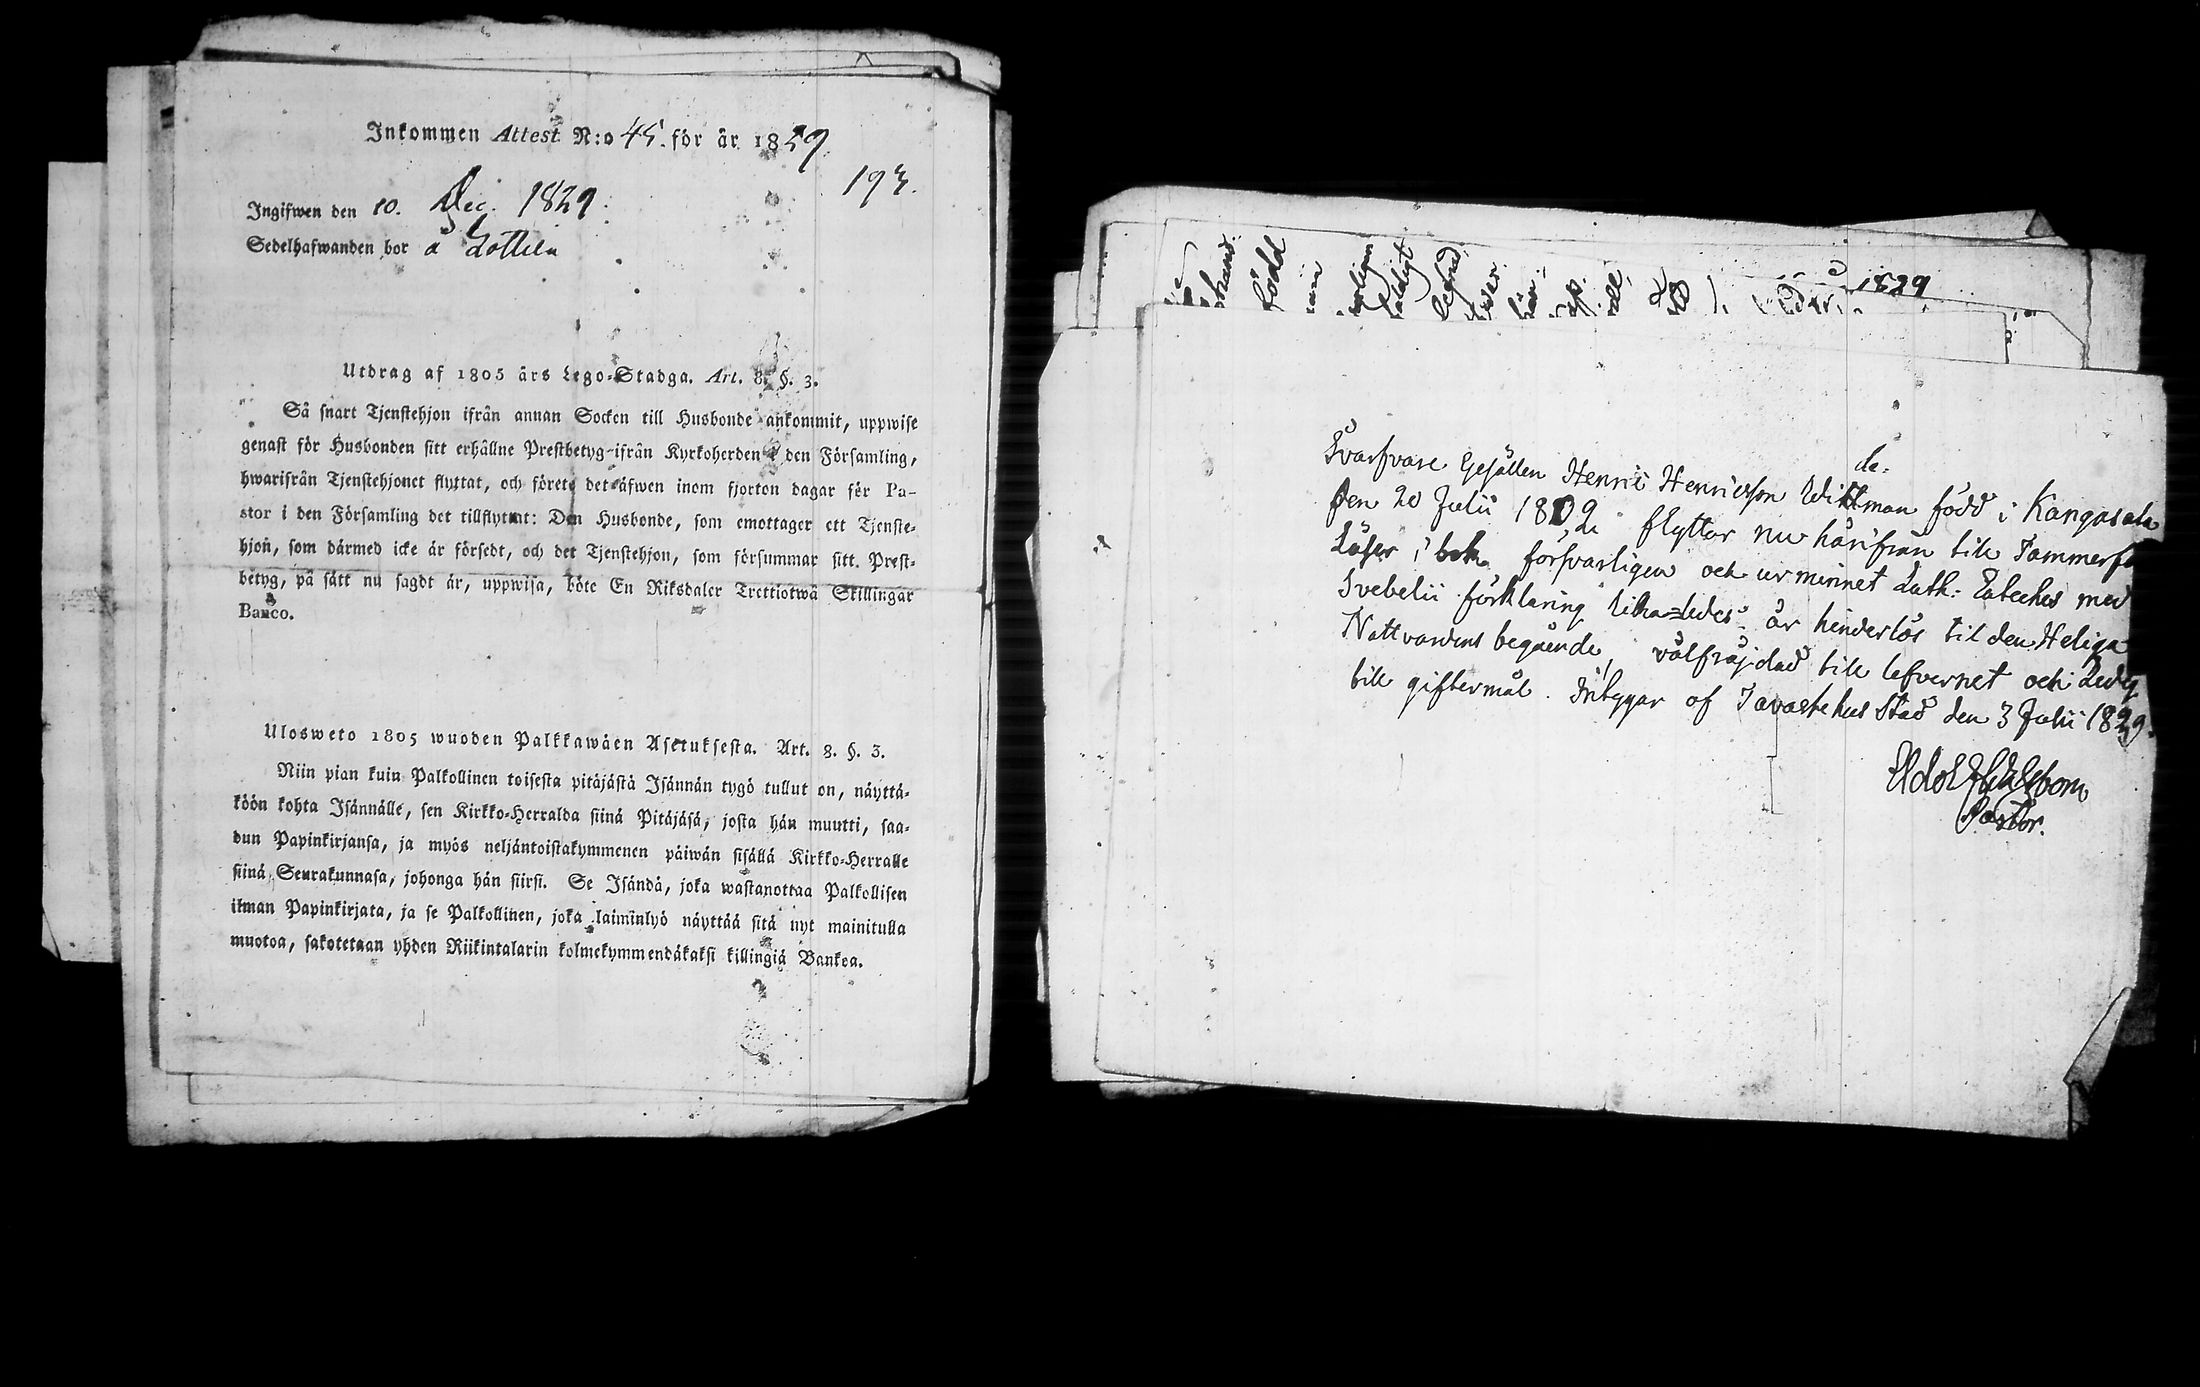 Inkommen Attest N:o 45. för år 1829
193.
Ingifwen den 10. Dec. 1829.
Sedelhafwanden bor å
Utdrag af 1805 års Lego-Stadga. Art. 8. §. 3.
Så snart Tjenstehjon ifrån annan Socken till Husbonde ankommit, uppwise
genast för Husbonden sitt erhållne Prestbetyg ifrån Kyrkoherden i den Församling,
hwarifrån Tjenstehjonet flyttat, och förete det äfwen inom fjorton dagar för Pa-
stor i den Församling det tillflyttat: Den Husbonde, som emottager ett Tjenste-
hjon, som därmed icke är försedt, och det Tjenstehjon, som försummar sitt Prest-
betyg, på sätt nu sagdt är, uppwisa, böte En Riksdaler Trettiotwå Skillingar
Banco.
Ulosweto 1805 wuoden Palkkawäen Asetuksesta. Art. 8. §. 3.
Niin pian kuin Palkollinen toisesta pitäjästä Isännän tygö tullut on, näyttä-
köön kohta Isännälle, sen Kirkko-Herralda siinä Pitäjäsä, josta hän muutti, saa-
dun Papinkirjansa, ja myös neljäntoistakymmenen päiwän sisällä Kirkko-Herralle
siinä Seurakunnasa, johonga hän siirsi. Se Isändä, joka wastanottaa Palkollisen
ilman Papinkirjata, ja se Palkollinen, joka laiminlyö näyttää sitä nyt mainitulla
muotoa, sakotetaan yhden Riikintalarin kolmekymmendäkaksi killingiä Bankoa.
född
1829
Svarfvare Gesällen Henric Henricsson Widman född i Kangasala
den 20 Julii 1802 flyttar nu härifrån till Tammerfo
Läser i bok försvarligen och ur minnet Luth: Cateches med
Svebelii förklaring lika-ledes är hinderlös til den Heliga
Nattvardens begående, välfräjdad till lefvernet och Ledig
till giftermål. Intygar af Tavastehus Stad den 3 Julii 1829.
Pastor.